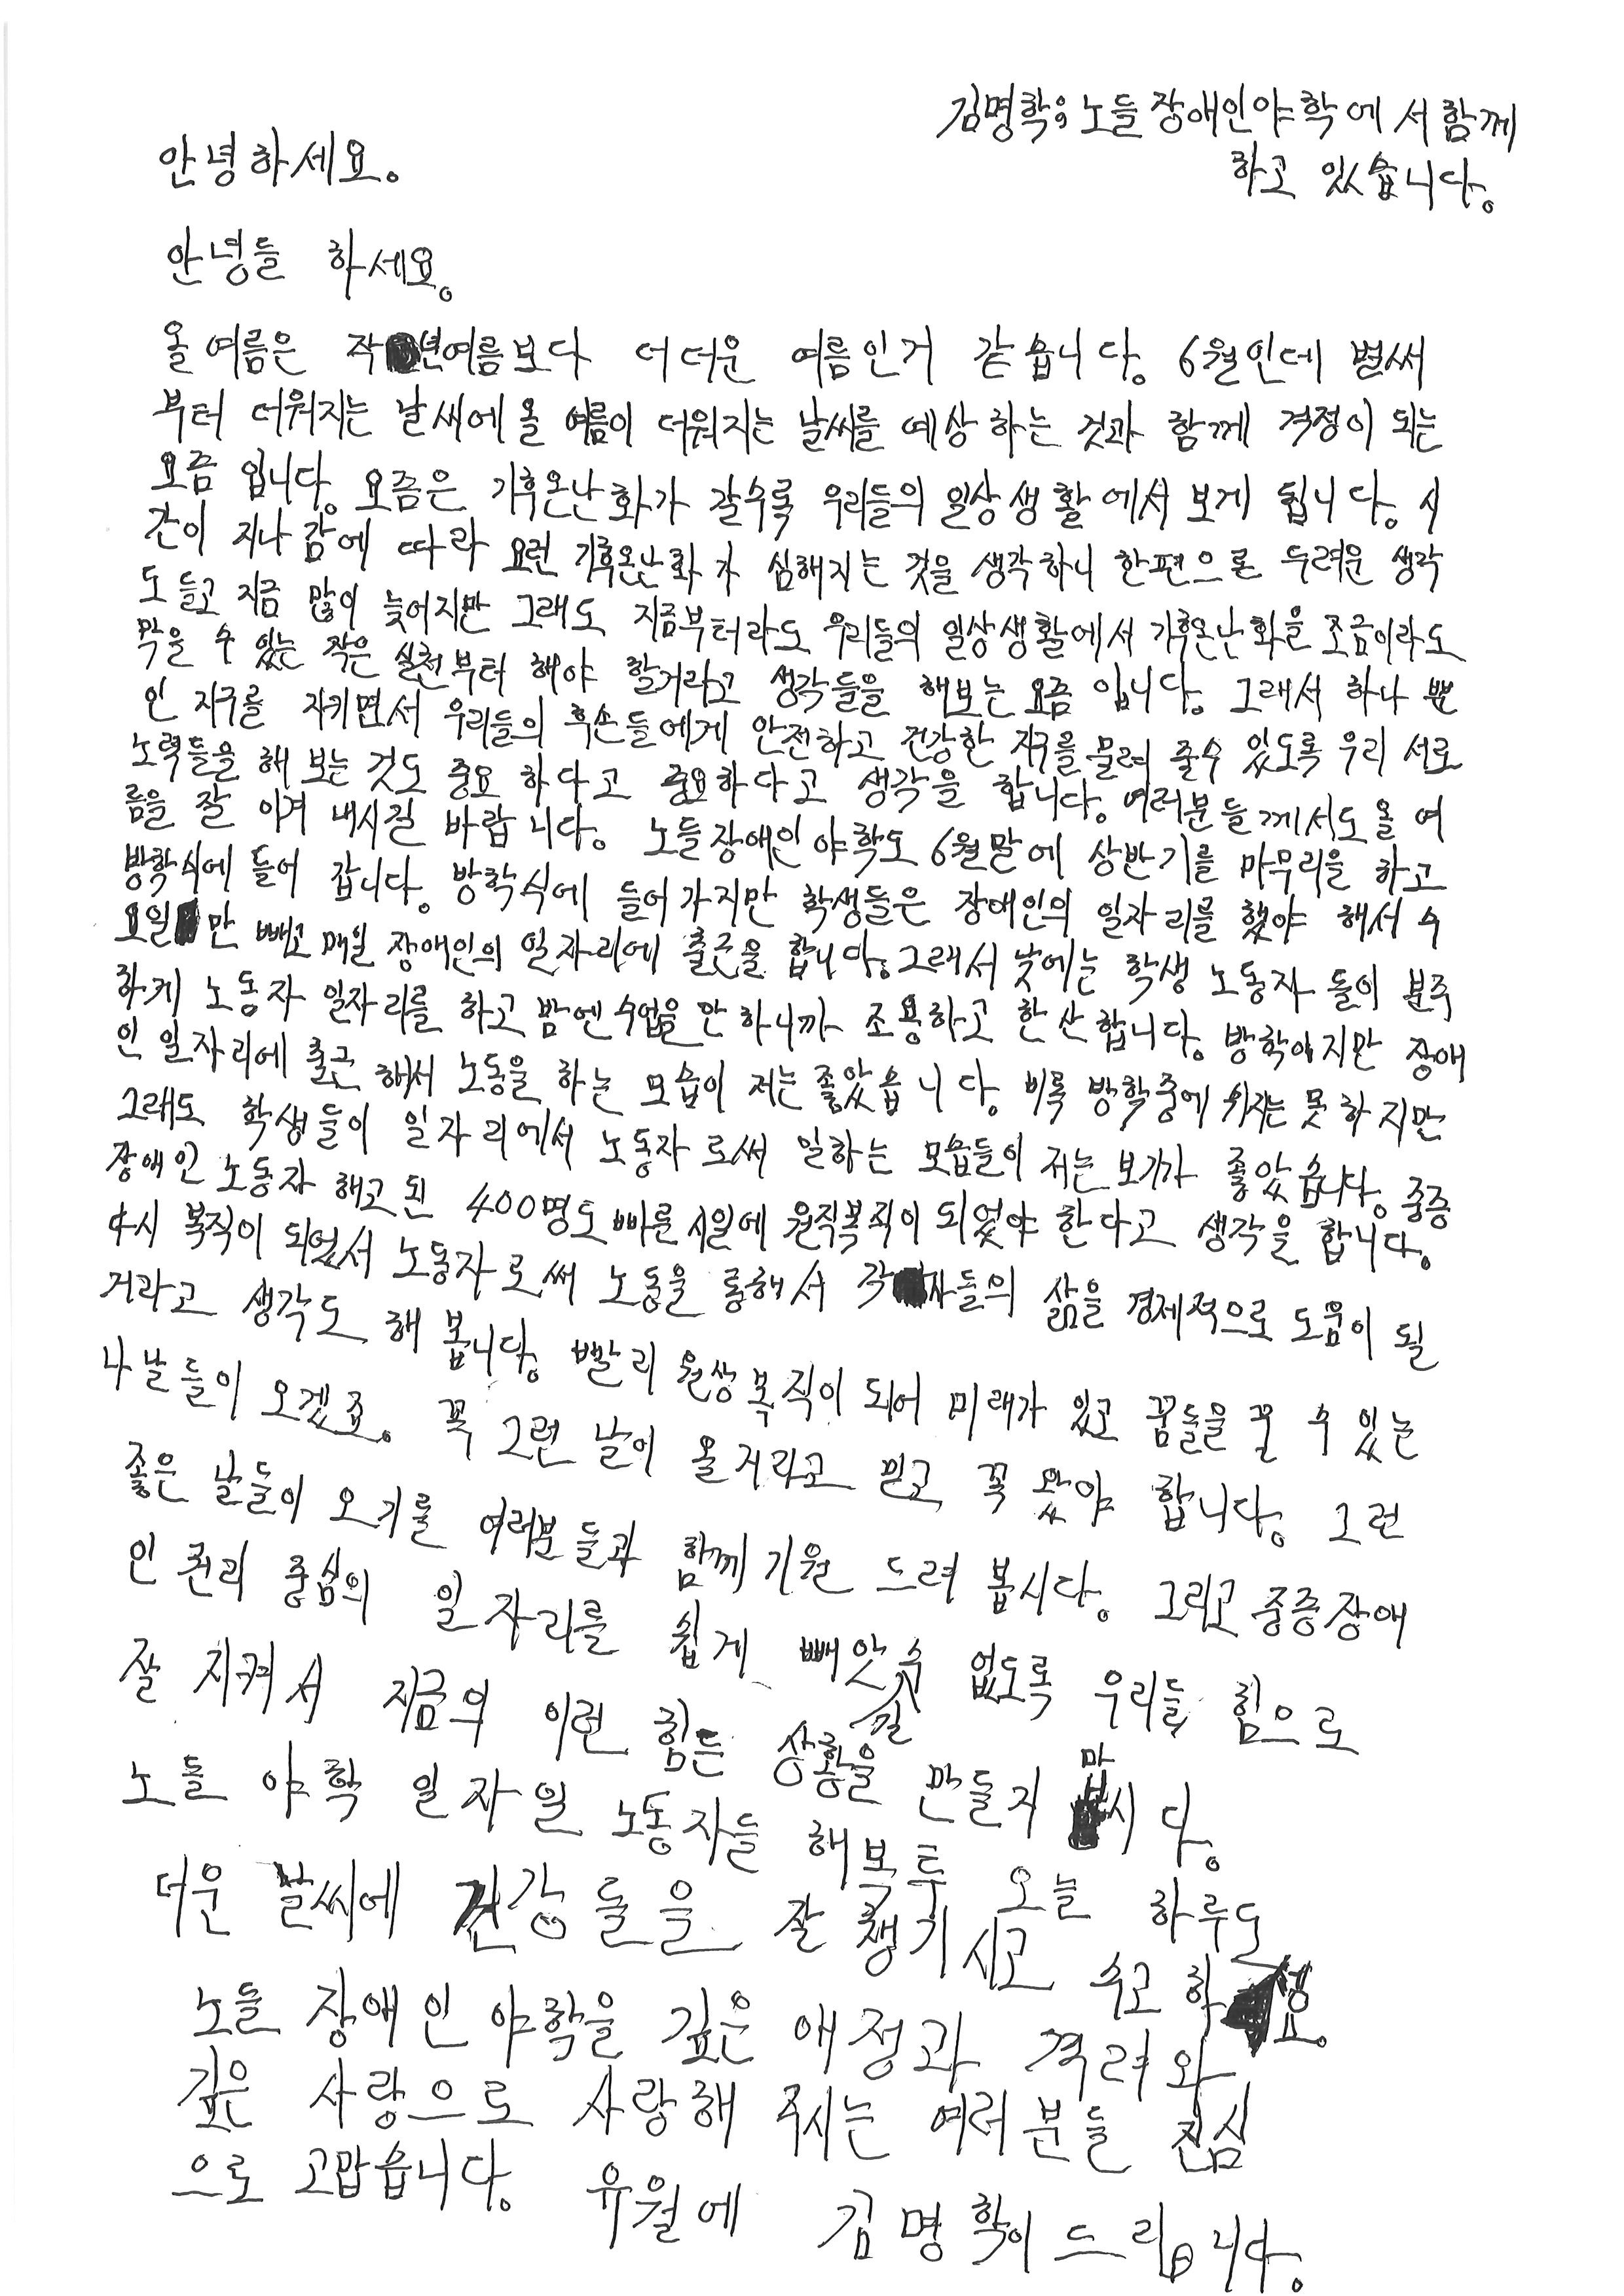 김명학; 노들장애인야학에서함께
하고 있습니다.
안녕하세요.
안녕들 하세요.
올 여름은 작년여름보다 더더운 여름인거 같습니다. 6월인데 벌써
부터 더워지는 날씨에올 여름이 더워지는 날씨를 예상하는 것과 함께 걱정이 되는
요즘 입니다. 요즘은 기후온난화가 갈수록 우리들의 일상생활에서 보게 됩니다. 시
간이 지나감에 따라 요런 기후온난화가 심해지는 것을 생각하니 한편으론 두려운 생각
도 들고 지금 많이 늦어지만 그래도 지금부터라도 우리들의 일상생활에서 기후온난화을 조금이라도
막을 수 있는 작은 실천부터 해야 할거라고 생각들을 해보는요즘 입니다. 그래서 하나 뿐
인 지구를 지키면서 우리들의 후손들에게 안전하고 건강한 지구를물려 줄수 있도록 우리 서로
노력들을 해 보는 것도 중요 하다고 중요하다고 생각을 합니다. 여러분들께서도올 여
름을 잘 이겨 내시길 바랍니다. 노들장애인야학도 6월말에 상반기를 마무리을 하고
방학식에 들어 갑니다. 방학식에 들어가지만 학생들은 장애인의 일자리를 했야 해서 수
요일만 빼고매일 장애인의 일자리에 출근을 합니다. 그래서 낮에는 학생 노동자 들이 분주
하게 노동자 일자리를 하고 밤엔수업을 안하니까 조용하고 한산합니다. 방학이지만 장애
인 일자리에 출근 해서 노동을 하는 모습이 저는 좋았습니다. 비록 방학중에 쉬지는 못하지만
그래도 학생들이 일자리에서 노동자로써 일하는 모습들이 저는 보기가 좋았습니다. 중증
장애인 노동자 해고된 400명도 빠른 시일에 원직복직이 되었야 한다고 생각을 합니다.
다시 복직이 되었서 노동자로써 노동을 통해서 각자들의 삶을 경제적으로 도움이 될
거라고 생각도 해 봅니다. 빨리 원상복직이 되어 미래가 있고 꿈들을 꿀 수 있는
나날들이 오겠죠. 꼭 그런 날이 올거라고 믿고 꼭 왔야 합니다. 그런
좋은 날들이 오기를 여러분들과 함께 기원 드려 봅시다. 그리고 중증장애
인 권리 중심의 일자리를 쉽게 빼앗길수 없도록 우리들 힘으로
잘 지켜서 지금의 이런 힘든 상황을 만들지 맙시다.
노들 야학 일자일 노동자들 해복투 오늘 하루도
더운 날씨에 건강들을 잘 챙기시고 수고 하셍요.
노들 장애인야학을 깊은 애정과 격려와
깊은 사랑으로 사랑해 주시는 여러분들 진심
으로 고맙습니다. 유월에 김명학이 드립니다.